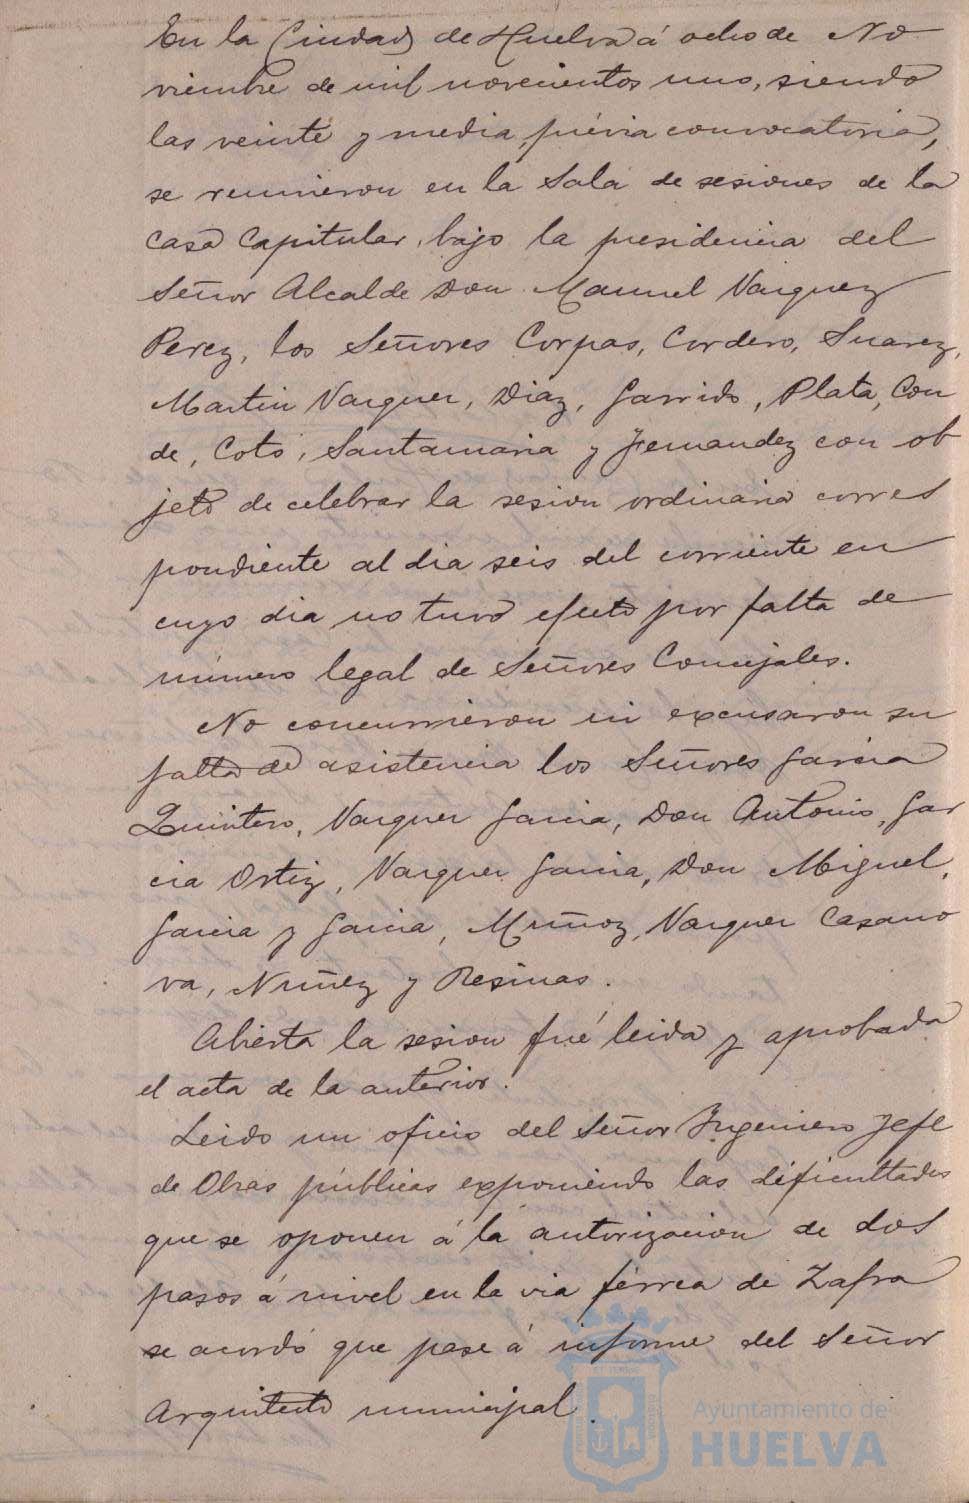 En la Ciudad de Huelva á ocho de No
viembre de mil novecientos uno, siendo
las veinte y media, prévia convocatoria,
se reunieron en la Sala de sesiones de la
Casa Capitular, bajo la presidencia del
Señor Alcalde Don Manuel Vazquez
Perez, los Señores Corpas, Cordero, Suarez,
Martin Vazquez, Diaz, Garrido, Plata, Con
de, Coto, Santamaria y Fernandez con ob
jeto de celebrar la sesion ordinaria corres
pondiente al dia seis del corriente en
cuyo dia no tuvo efecto por falta de
número legal de Señores Concejales.
No concurrieron ni excusaron su
falta de asistencia los Señores Garcia
Quintero, Vazquez Garcia, Don Antonio, Gar
cia Ortiz, Vazquez Garcia, Don Miguel,
Garcia y Garcia, Muñoz, Vazquez Casano
va, Nuñez y Resinas.
Abierta la sesion fué leida y aprobada
el acta de la anterior.
Leido un oficio del Señor Ingeniero Jefe
de Obras públicas exponiendo las dificultades
que se oponen á la autorizacion de dos
pasos á nivel en la via férrea de Zafra
se acordó que pase á informe del Señor
Arquitecto municipal.
Ayuntamiento de
HUELVA